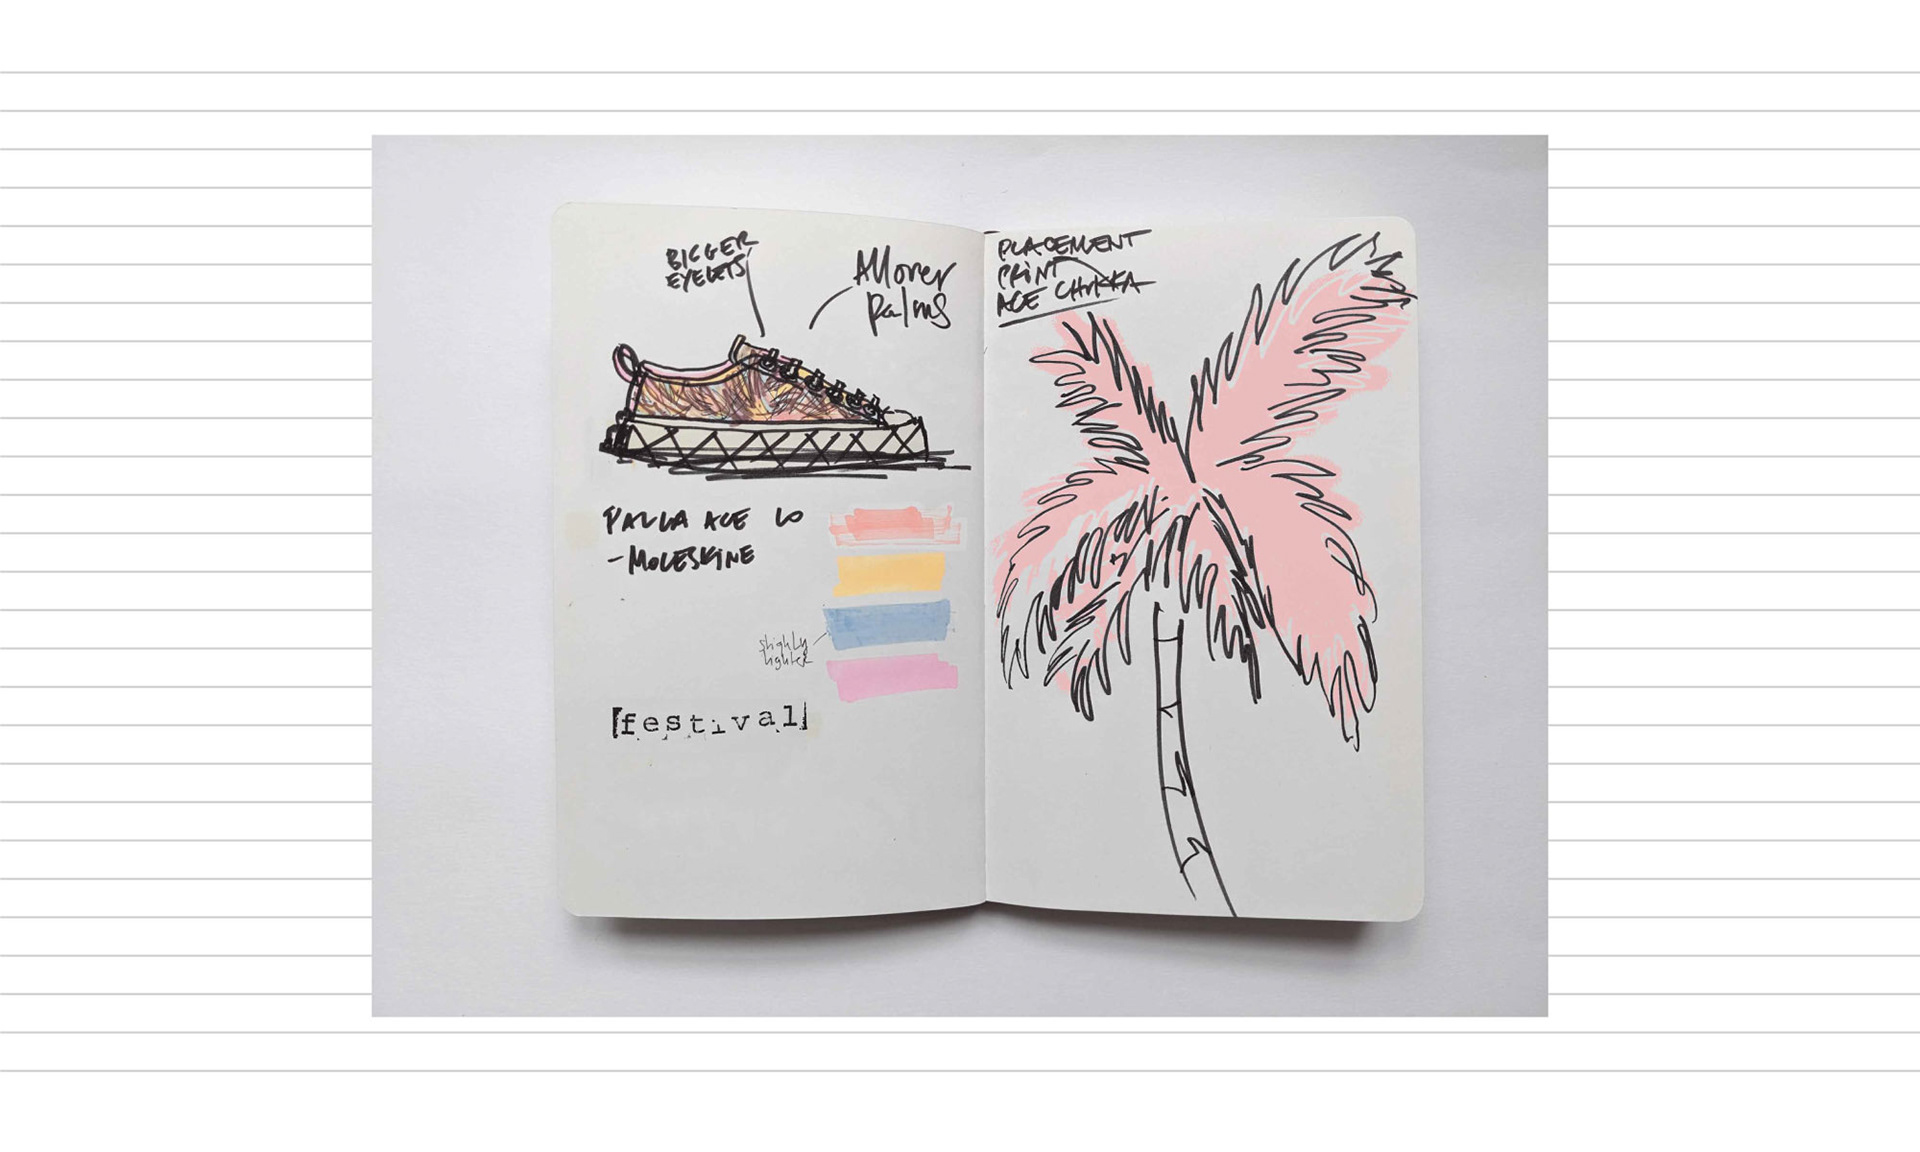 BIGGER
EYELETS
Allover
palms
PALLA ACE LO
-MOLESKINE
slighly
lighter
[festival]
PLACEMENT
PRINT
ACE CHUKKA